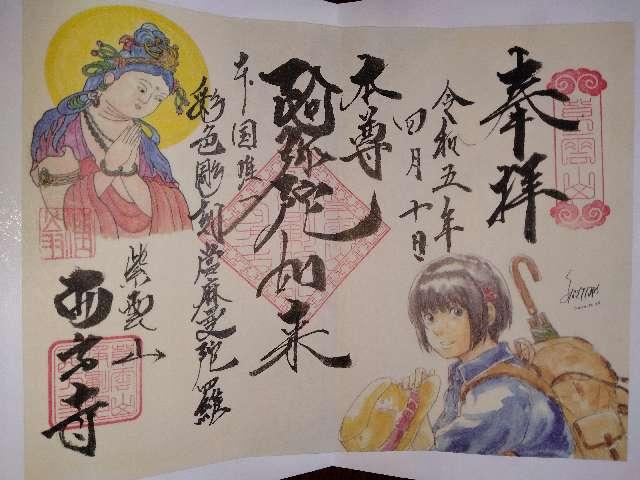 奉拝
紫雲山
令和五年
四月十日
本尊
阿弥陀如来
本国唯一
彩色彫刻當麻曼陀羅
紫雲山
西方寺